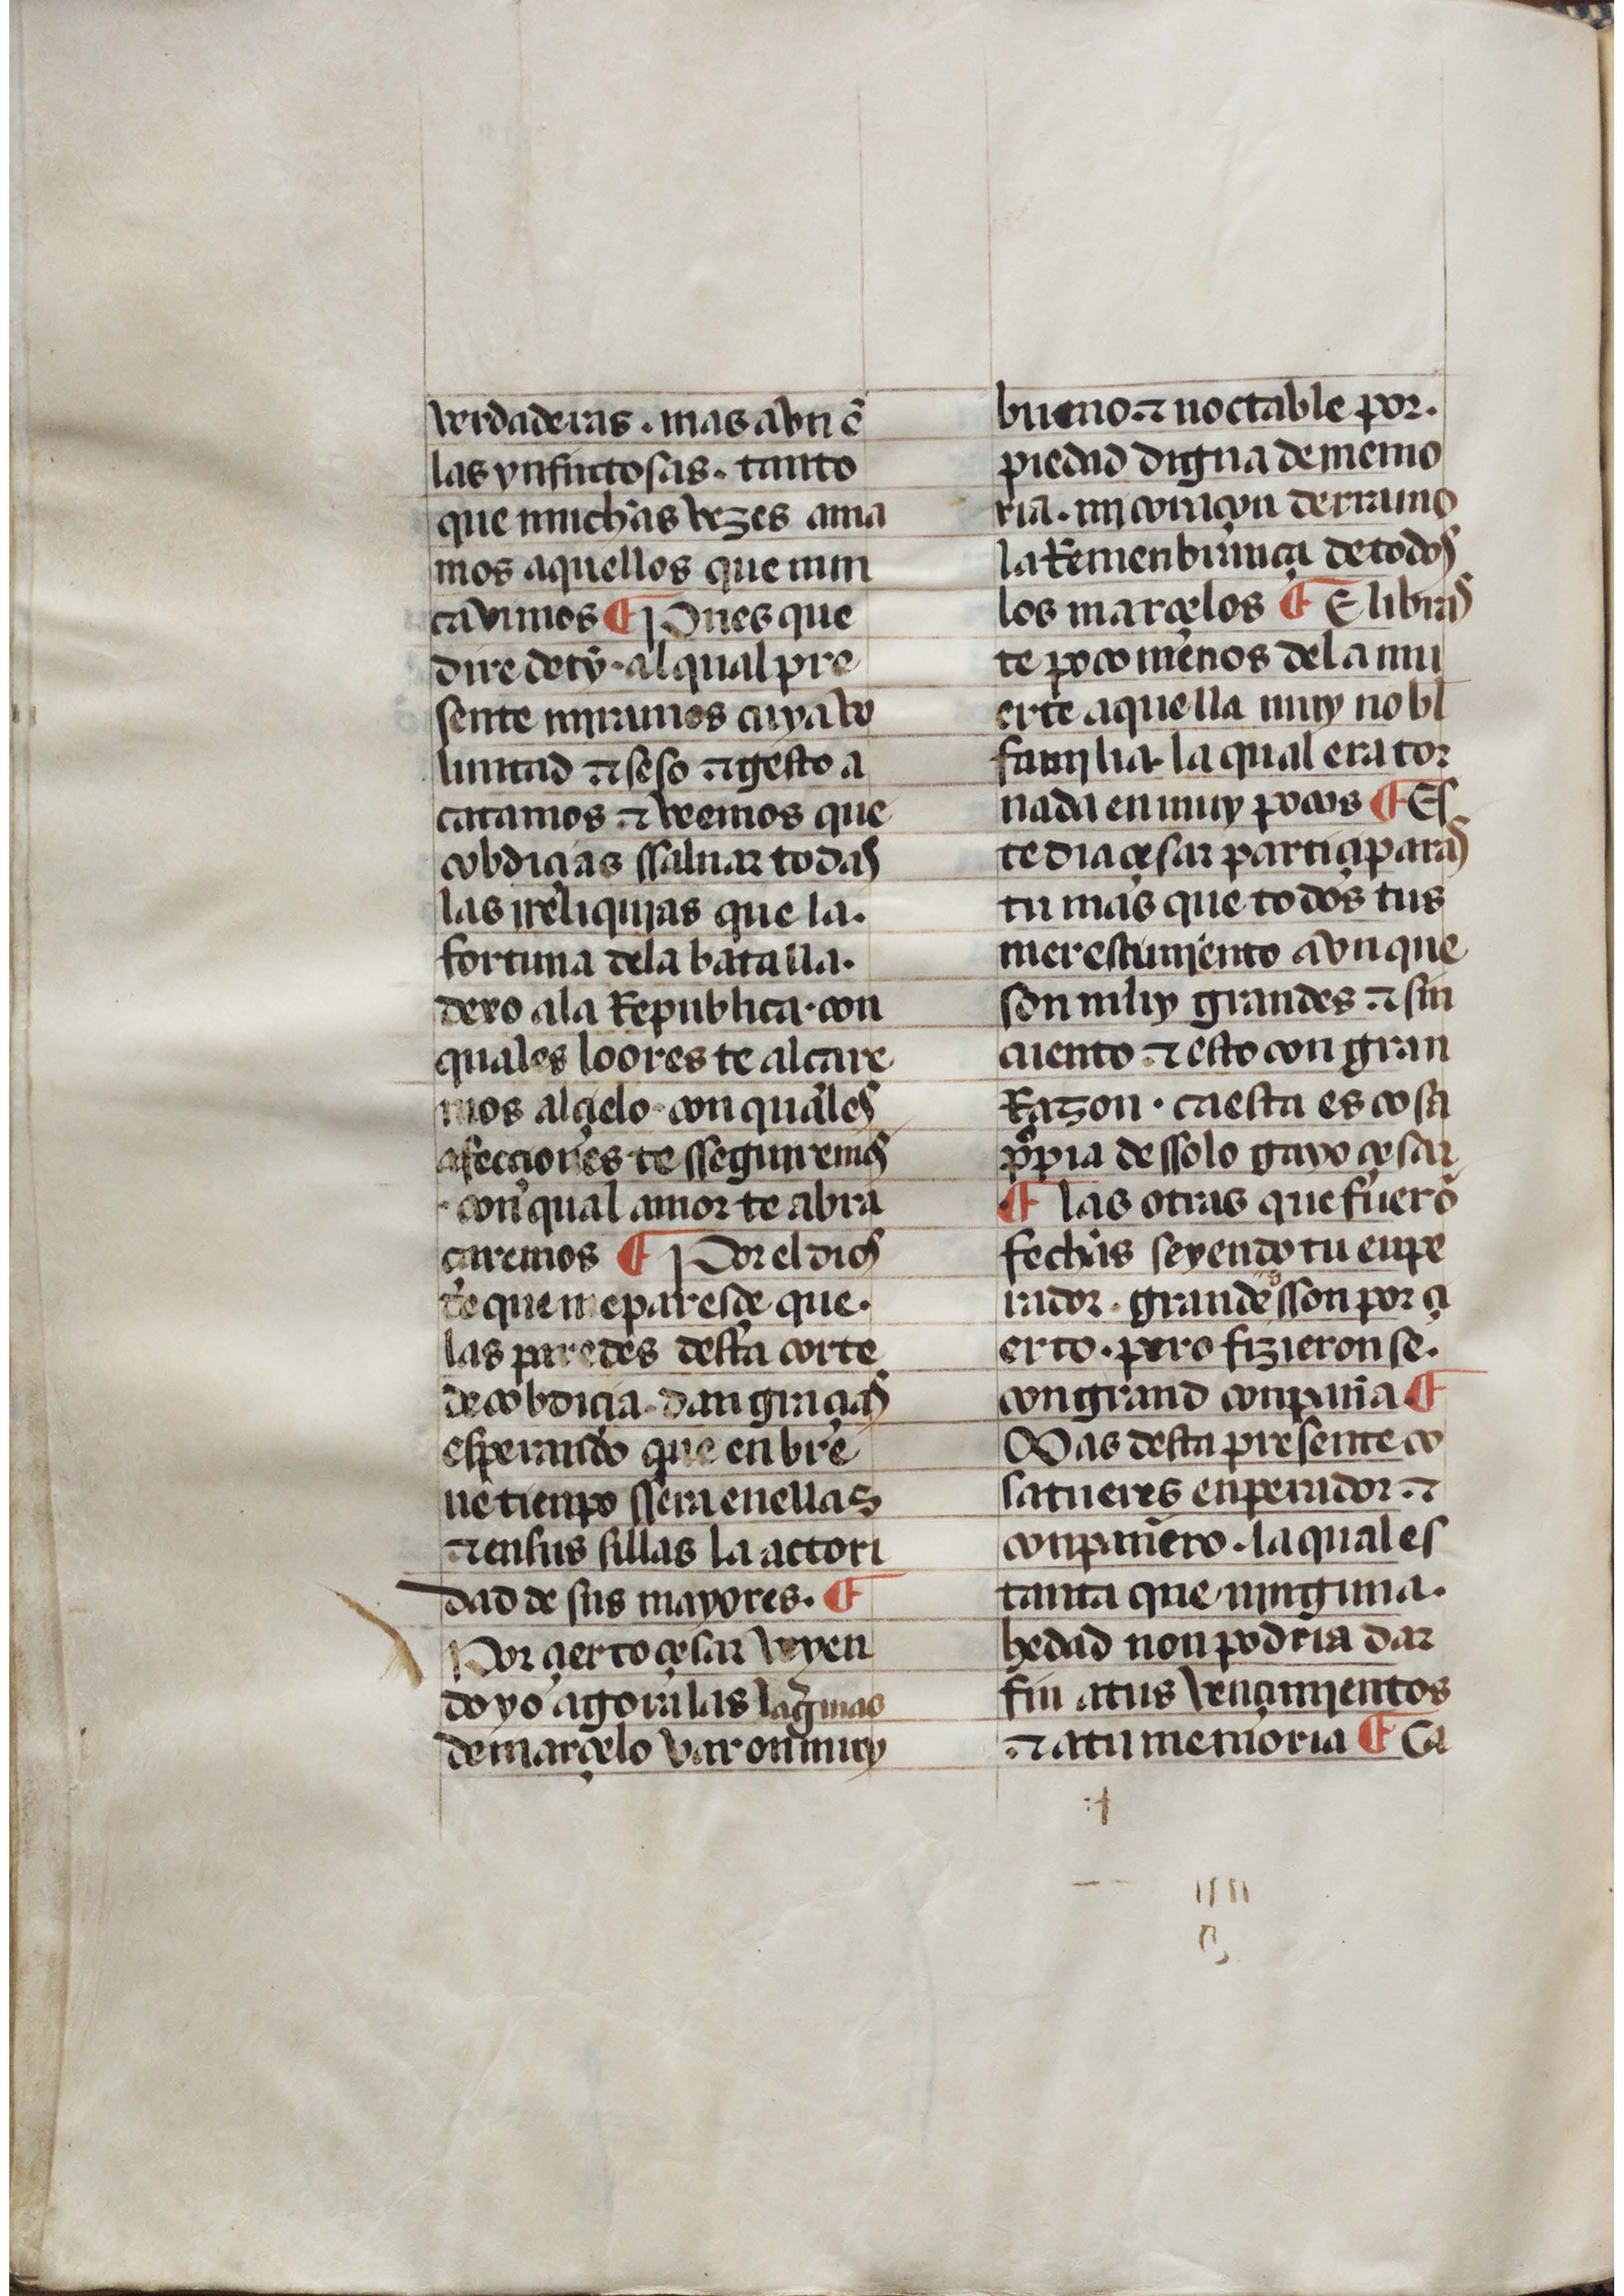 verdaderas . mas avn ẽ
las ynfintosas . tanto
que muchas vezes ama
mos aquellos que nun
ca vimos ¶ Pues que
dire de ty . al qual pre
sente miramos cuya vo
luntad ⁊ seso ⁊ gesto a
catamos ⁊ veemos que
cobdiçias ssaluar todas
las rreliquias que la .
fortuna dela batalla .
dexo ala Republica . con
quales loores te alçare
mos al çielo . con quales
afecçiones te sseguiremos
. con qual amor te abra
çaremos ¶ Por el dios
te que me paresçe que .
las paredes desta corte
de cobdiçia . dan graçias
esperando que en bre
ue tienpo ssera en ellas
⁊ en sus sillas la actori
dad de sus mayores . ¶
Por çierto çesar veyen
do yo agora las lag̃mas
de marçelo varon muy
bueno ⁊ noctable por .
piedad digna de memo
ria . mi coraçon derramo
la Remenbrança de todos
los marçelos ¶ E libras
te poco menos dela mu
erte aquella muy nobl
familia . la qual era tor
nada en muy pocos ¶ Es
te dia çesar partiçiparas
tu mas que todos tus
meresçimiento avn que
son muy grandes ⁊ sin
cuento ⁊ esto con gran
Razon . ca esta es cosa
p̃pia de ssolo gayo çesar
¶ las otras que fuerõ
fechas seyendo tu enpe
rador . grandes sson por çi
erto . pero fizieron se .
con grand conpañia ¶
Mas desta presente co
sa tu eres enperador ⁊
conpañero . la qual es
tanta que ninguna .
hedad non podria dar
fin atus vençimientos
⁊ atu memoria ¶ Ca